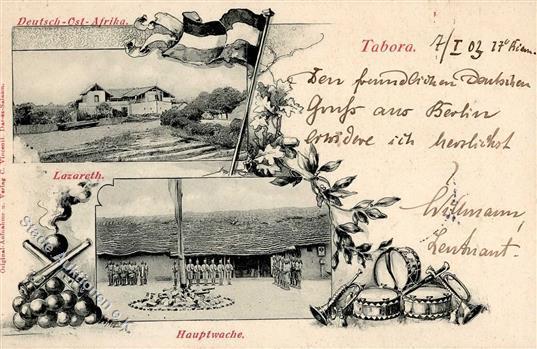 Deutsch-Ost-Afrika.
Tabora. 7/I 03
Den freundlichen Deutschen
Gruß aus Berlin
erwidere ich herzlichst
Lazareth.
Willmann,
Leutnant.
Hauptwache.
Original-Aufnahme u. Verlag C. Vincenti, Dar-es-Salaam.